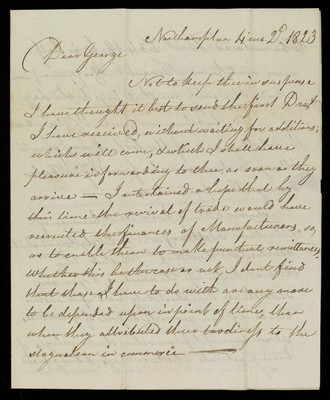 Northampton 4 mo. 2d. 1823
Dear George
Not to keep thee in suspense
I have thought it best to send the first Draft
I have received, without waiting for additions,
which will come, & which I shall have
pleasure in forwarding to thee as soon as they
arrive — I entertained a hope that by
this time the revival of trade would have
recruited the finances of Manufacturers, so,
as to enable them to make punctual remittances,
whether this be the case or not, I dont find
that those I have to do with are any more
to be depended upon in point of time, than
when they attributed their tardiness to the
stagnation in commerce —